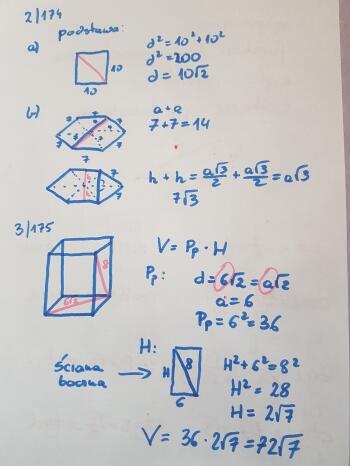 2/174
podstawa:
a)
10
10
d² = 10² + 10²
d² = 200
d = 10√2
b)
7
7
7
7
7
a + a
7 + 7 = 14
7
7
7
h + h = a√3/2 + a√3/2 = a√3
7√3
3/175
8
6√2
V = Pp · H
Pp:
d = 6√2 = a√2
a = 6
Pp = 6² = 36
H:
ściana
boczna
H
8
6
H² + 6² = 8²
H² = 28
H = 2√7
V = 36 · 2√7 = 72√7